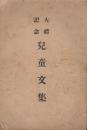 大禮
記念
兒童文集